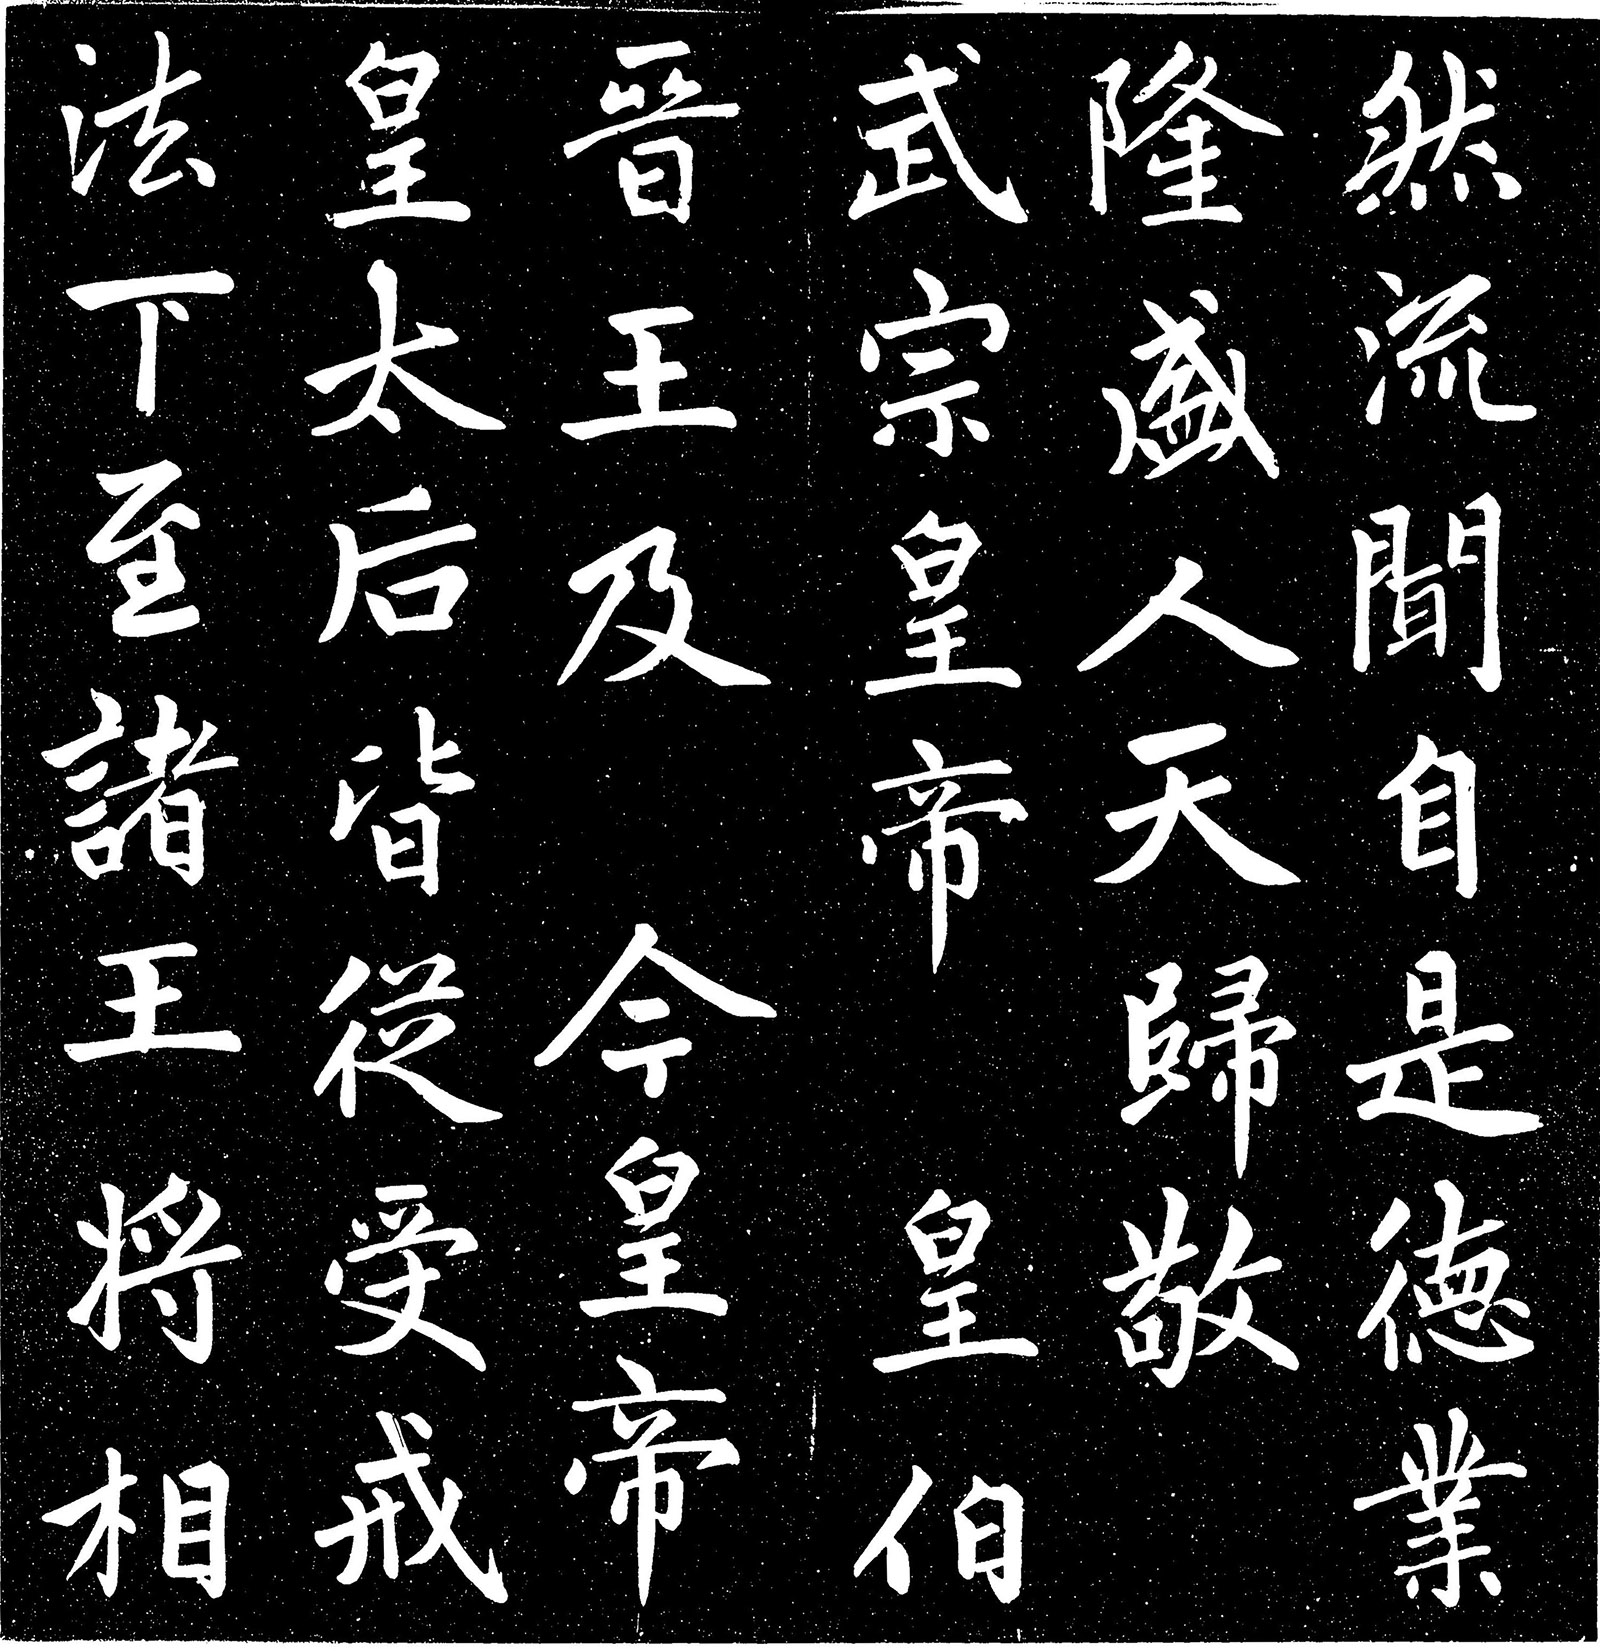 然流聞自是德業
隆盛人天歸敬
武宗皇帝　皇伯
晉王及　今皇帝
皇太后皆從受戒
法下至諸王將相